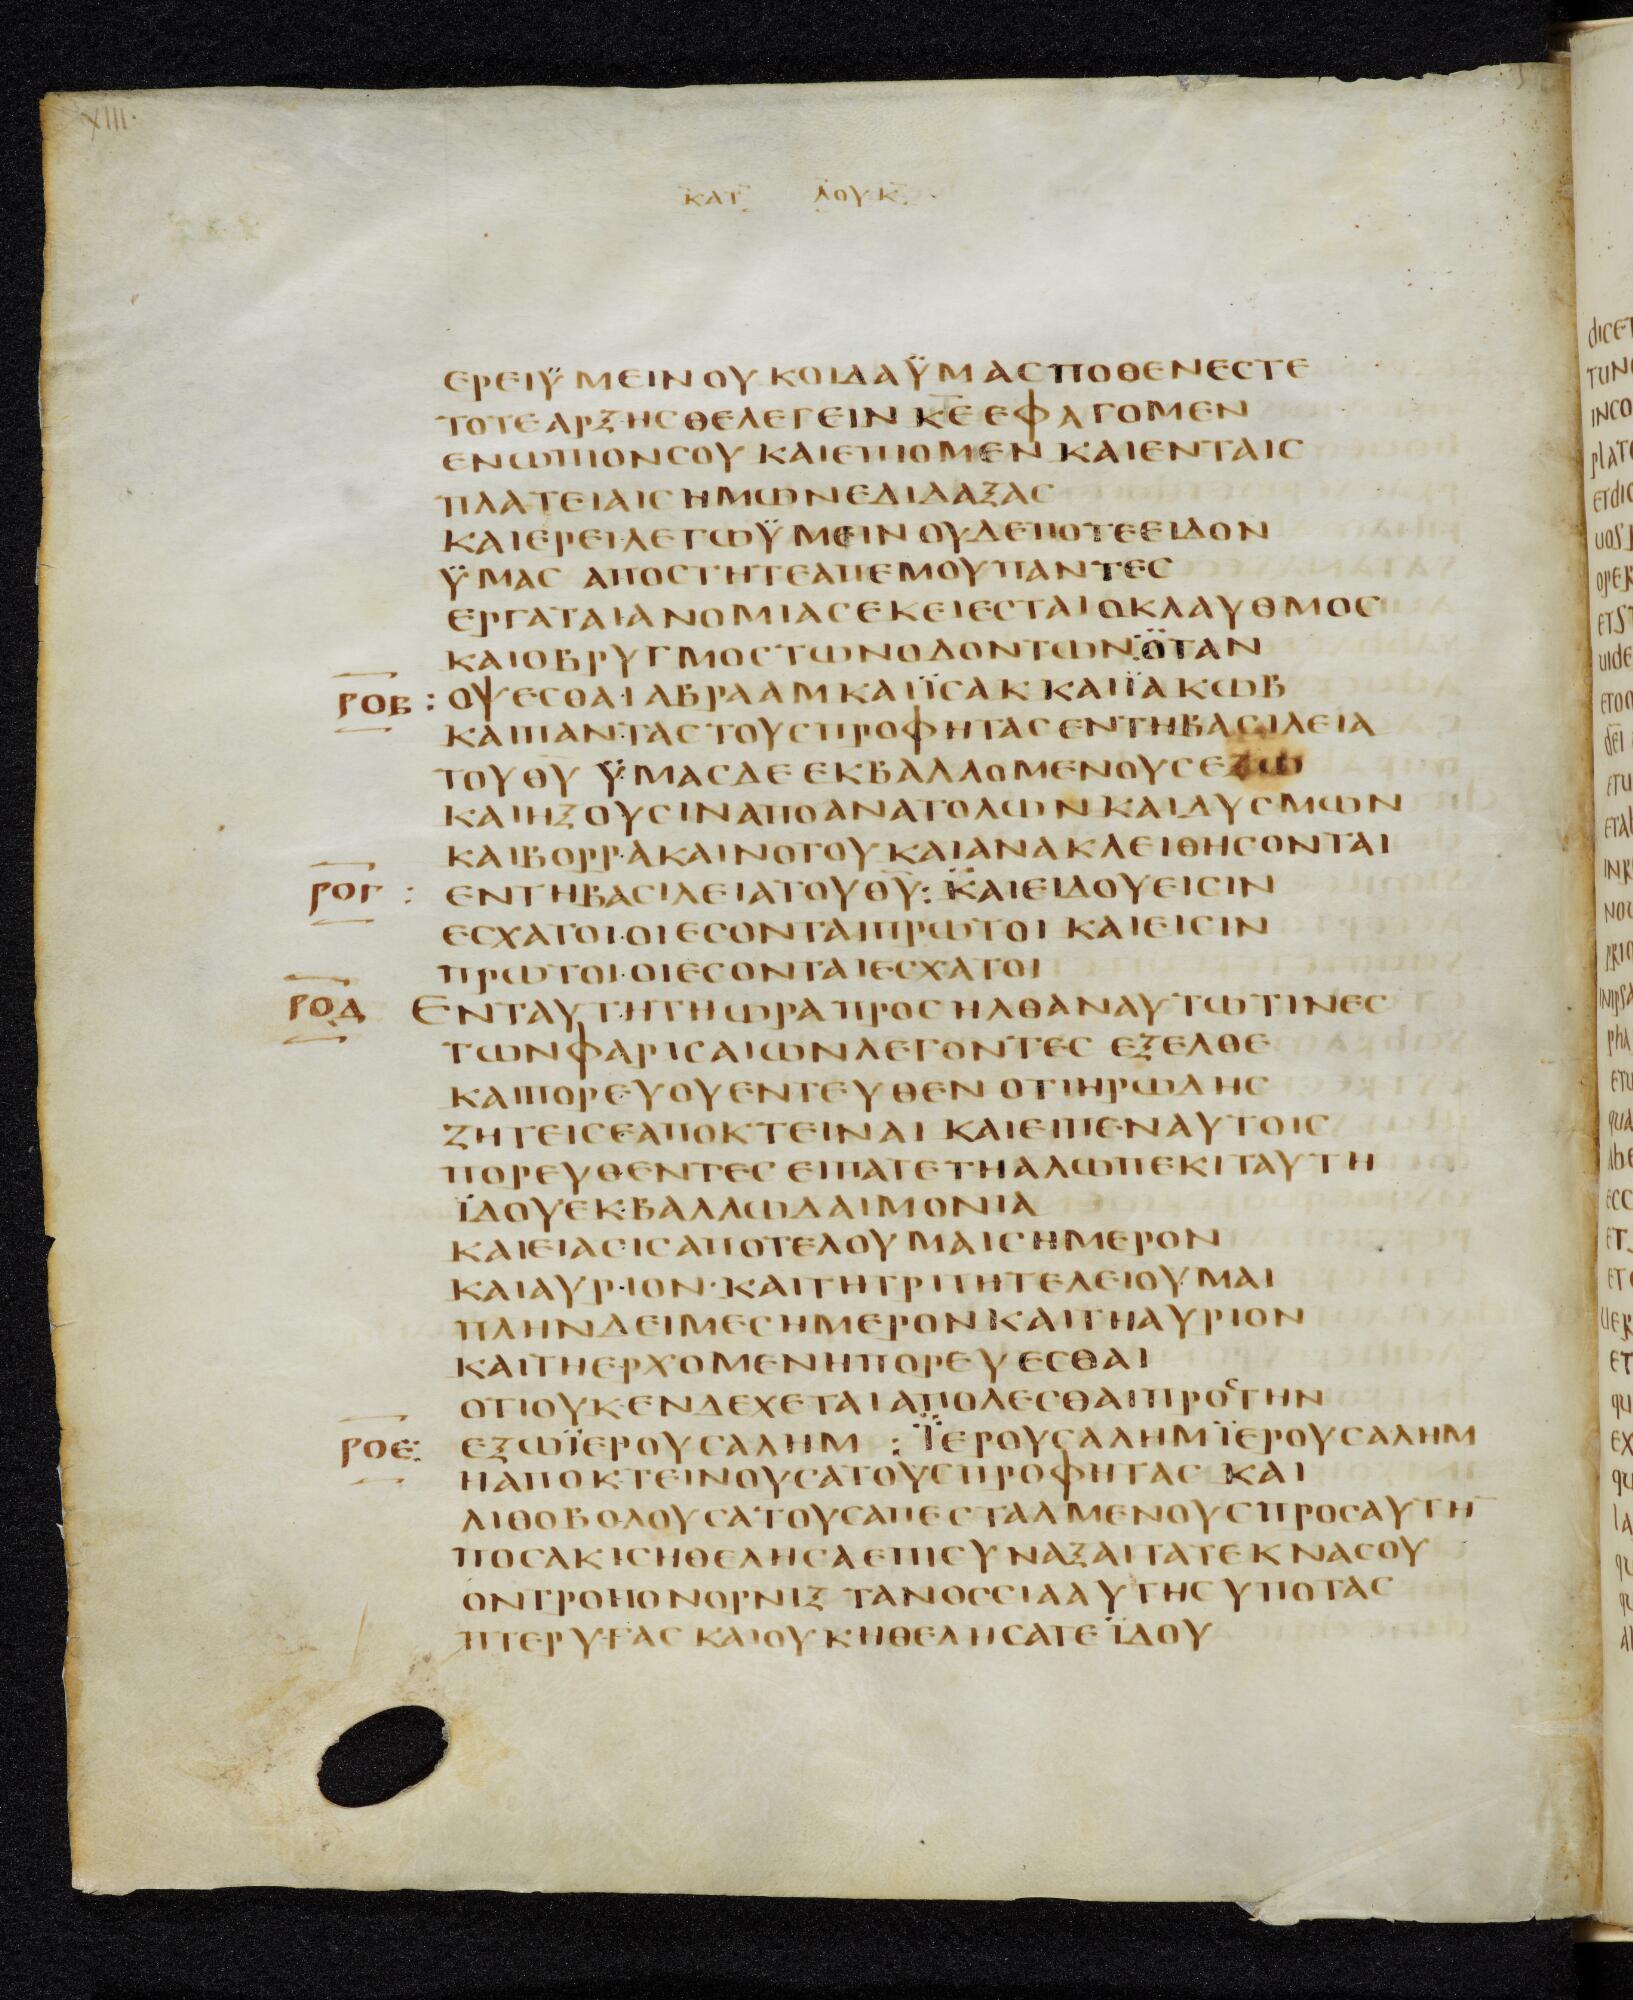 XIII·
ΚΑΤ ΛΟΥΚ
ΕΡΕΙΫΜΕΙΝΟΥΚΟΙΔΑΫΜΑCΠΟΘΕΝΕCΤΕ
ΤΟΤΕΑΡΞΗCΘΕΛΕΓΕΙΝ Κ̅Ε̅ ΕΦΑΓΟΜΕΝ
ΕΝΩΠΙΟΝCΟΥ ΚΑΙΕΠΙΟΜΕΝ ΚΑΙΕΝΤΑΙC
ΠΛΑΤΕΙΑΙCΗΜΩΝΕΔΙΔΑΞΑC
ΚΑΙΕΡΕΙΛΕΓΩΫΜΕΙΝ ΟΥΔΕΠΟΤΕΕΙΔΟΝ
ΫΜΑC ΑΠΟCΤΗΤΕΑΠΕΜΟΥΠΑΝΤΕC
ΕΡΓΑΤΑΙΑΝΟΜΙΑCΕΚΕΙΕCΤΑΙΟΚΛΑΥΘΜΟC
ΚΑΙΟΒΡΥΓΜΟCΤΩΝΟΔΟΝΤΩΝ:ΟΤΑΝ
ΡΟΒ : ΟΨΕCΘΑΙΑΒΡΑΑΜΚΑΙΪCΑΚ ΚΑΙΪΑΚΩΒ
ΚΑΙΠΑΝΤΑCΤΟΥCΠΡΟΦΗΤΑCΕΝΤΗΒΑCΙΛΕΙΑ
ΤΟΥΘ̅Υ̅ ΫΜΑCΔΕ ΕΚΒΑΛΛΟΜΕΝΟΥCΕΞΩ
ΚΑΙΗΞΟΥCΙΝΑΠΟΑΝΑΤΟΛΩΝ ΚΑΙΔΥCΜΩΝ
ΚΑΙΒΟΡΡΑΚΑΙΝΟΤΟΥ ΚΑΙΑΝΑΚΛΕΙΘΗCΟΝΤΑΙ
ΡΟΓ : ΕΝΤΗΒΑCΙΛΕΙΑΤΟΥΘ̅Υ̅: ΚΑΙΕΙΔΟΥΕΙCΙΝ
ΕCΧΑΤΟΙ·ΟΙΕCΟΝΤΑΙΠΡΩΤΟΙ ΚΑΙΕΙCΙΝ
ΠΡΩΤΟΙ·ΟΙΕCΟΝΤΑΙΕCΧΑΤΟΙ
ΡΟΔ ΕΝΤΑΥΤΗΤΗΩΡΑ ΠΡΟCΗΛΘΑΝΑΥΤΩΤΙΝΕC
ΤΩΝΦΑΡΙCΑΙΩΝΛΕΓΟΝΤΕC ΕΞΕΛΘΕ
ΚΑΙΠΟΡΕΥΟΥΕΝΤΕΥΘΕΝ ΟΤΙΗΡΩΔΗC
ΖΗΤΕΙCΕΑΠΟΚΤΕΙΝΑΙ ΚΑΙΕΙΠΕΝΑΥΤΟΙC
ΠΟΡΕΥΘΕΝΤΕC ΕΙΠΑΤΕ ΤΗΑΛΩΠΕΚΙ ΤΑΥΤΗ
ΪΔΟΥΕΚΒΑΛΛΩΔΑΙΜΟΝΙΑ
ΚΑΙΕΙΑCΙCΑΠΟΤΕΛΟΥΜΑΙCΗΜΕΡΟΝ
ΚΑΙΑΥΡΙΟΝ·ΚΑΙΤΗΤΡΙΤΗΤΕΛΕΙΟΥΜΑΙ
ΠΛΗΝΔΕΙΜΕCΗΜΕΡΟΝΚΑΙΤΗΑΥΡΙΟΝ
ΚΑΙΤΗΕΡΧΟΜΕΝΗΠΟΡΕΥΕCΘΑΙ
ΟΤΙΟΥΚΕΝΔΕΧΕΤΑΙΑΠΟΛΕCΘΑΙΠΡΟCΤΗΝ
ΡΟΕ: ΕΞΩΪΕΡΟΥCΑΛΗΜ : ΪΕΡΟΥCΑΛΗΜ ΪΕΡΟΥCΑΛΗΜ
ΗΑΠΟΚΤΕΙΝΟΥCΑΤΟΥCΠΡΟΦΗΤΑC ΚΑΙ
ΛΙΘΟΒΟΛΟΥCΑΤΟΥCΑΠΕCΤΑΛΜΕΝΟΥCΠΡΟCΑΥΤΗ̅
ΠΟCΑΚΙCΗΘΕΛΗCΑΕΠΙCΥΝΑΞΑΙΤΑΤΕΚΝΑCΟΥ
ΟΝΤΡΟΠΟΝΟΡΝΙΞ ΤΑΝΟCCΙΑΑΥΤΗCΥΠΟΤΑC
ΠΤΕΡΥΓΑC ΚΑΙΟΥΚΗΘΕΛΗCΑΤΕ ΪΔΟΥ